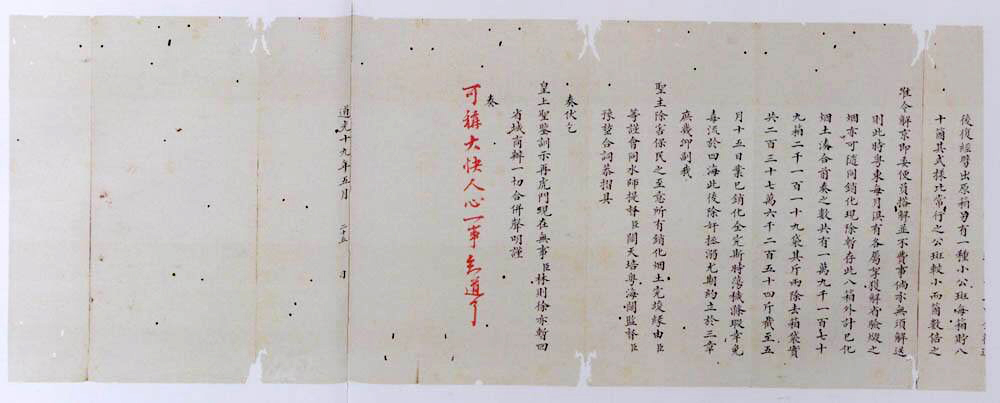 後復經劈出原箱另有一種小公班每箱貯八
十箇其式樣比常行之公班較小而箇數倍之
准令解京即委便員搭解並不費事倘亦無須解送
則此時粵東每月俱有各屬拏獲解省驗燬之
烟亦可隨同銷化現除暫存此八箱外計已化
烟土湊合前奏之數共有一萬九千一百七十
九箱二千一百一十九袋其斤兩除去箱袋實
共二百三十七萬六千二百五十四斤截至五
月十五日業已銷化全完斯時蕩穢滌瑕幸免
毒流於四海此後除奸拯溺尤期約立於三章
庶幾仰副我
聖主除害保民之至意所有銷化烟土完竣緣由臣
等謹會同水師提督臣關天培粵海關監督臣
豫堃合詞恭摺具
奏伏乞
皇上聖鑒訓示再虎門現在無事臣林則徐亦暫回
省城商辦一切合併聲明謹
奏
可稱大快人心一事知道了
道光十九年五月 二十五 日